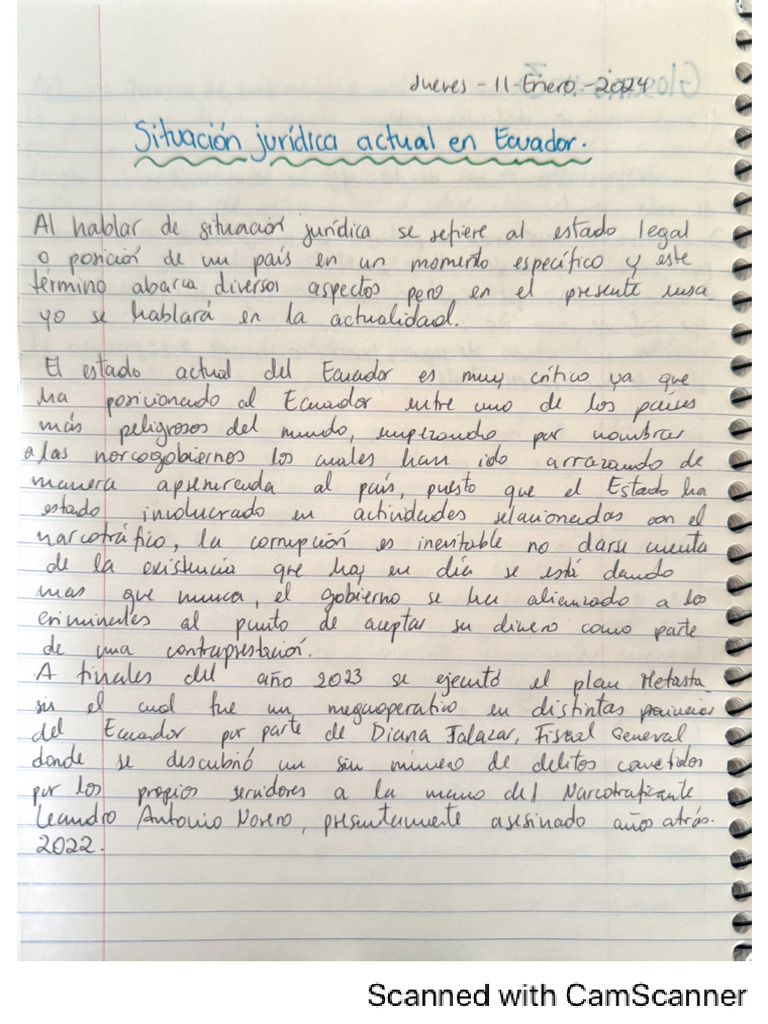 Jueves - 11 - Enero - 2024
Situación jurídica actual en Ecuador.
Al hablar de situación jurídica se refiere al estado legal
o posición de un país en un momento específico y este
término abarca diversos aspectos pero en el presente ensa
yo se hablará en la actualidad.
El estado actual del Ecuador es muy crítico ya que
ha posicionado al Ecuador entre uno de los países
más peligrosos del mundo, empezando por nombrar
a las narcogobiernos los cuales han ido arrazando de
manera apresurada al país, puesto que el Estado ha
estado involucrado en actividades relacionadas con el
narcotráfico, la corrupción es inevitable no darse cuenta
de la existencia que hoy en día se está dando
mas que nunca, el gobierno se ha alienzado a los
criminales al punto de aceptar su dinero como parte
de una contraprestación.
A finales del año 2023 se ejecutó el plan Metasta
sis el cual fue un megaoperativo en distintas provincias
del Ecuador por parte de Diana Salazar, Fiscal General
donde se descubrió un sin número de delitos cometidos
por los propios servidores a la mano del Narcotraficante
Leandro Antonio Noreno, presuntamente asesinado años atrás.
2022.
Scanned with CamScanner